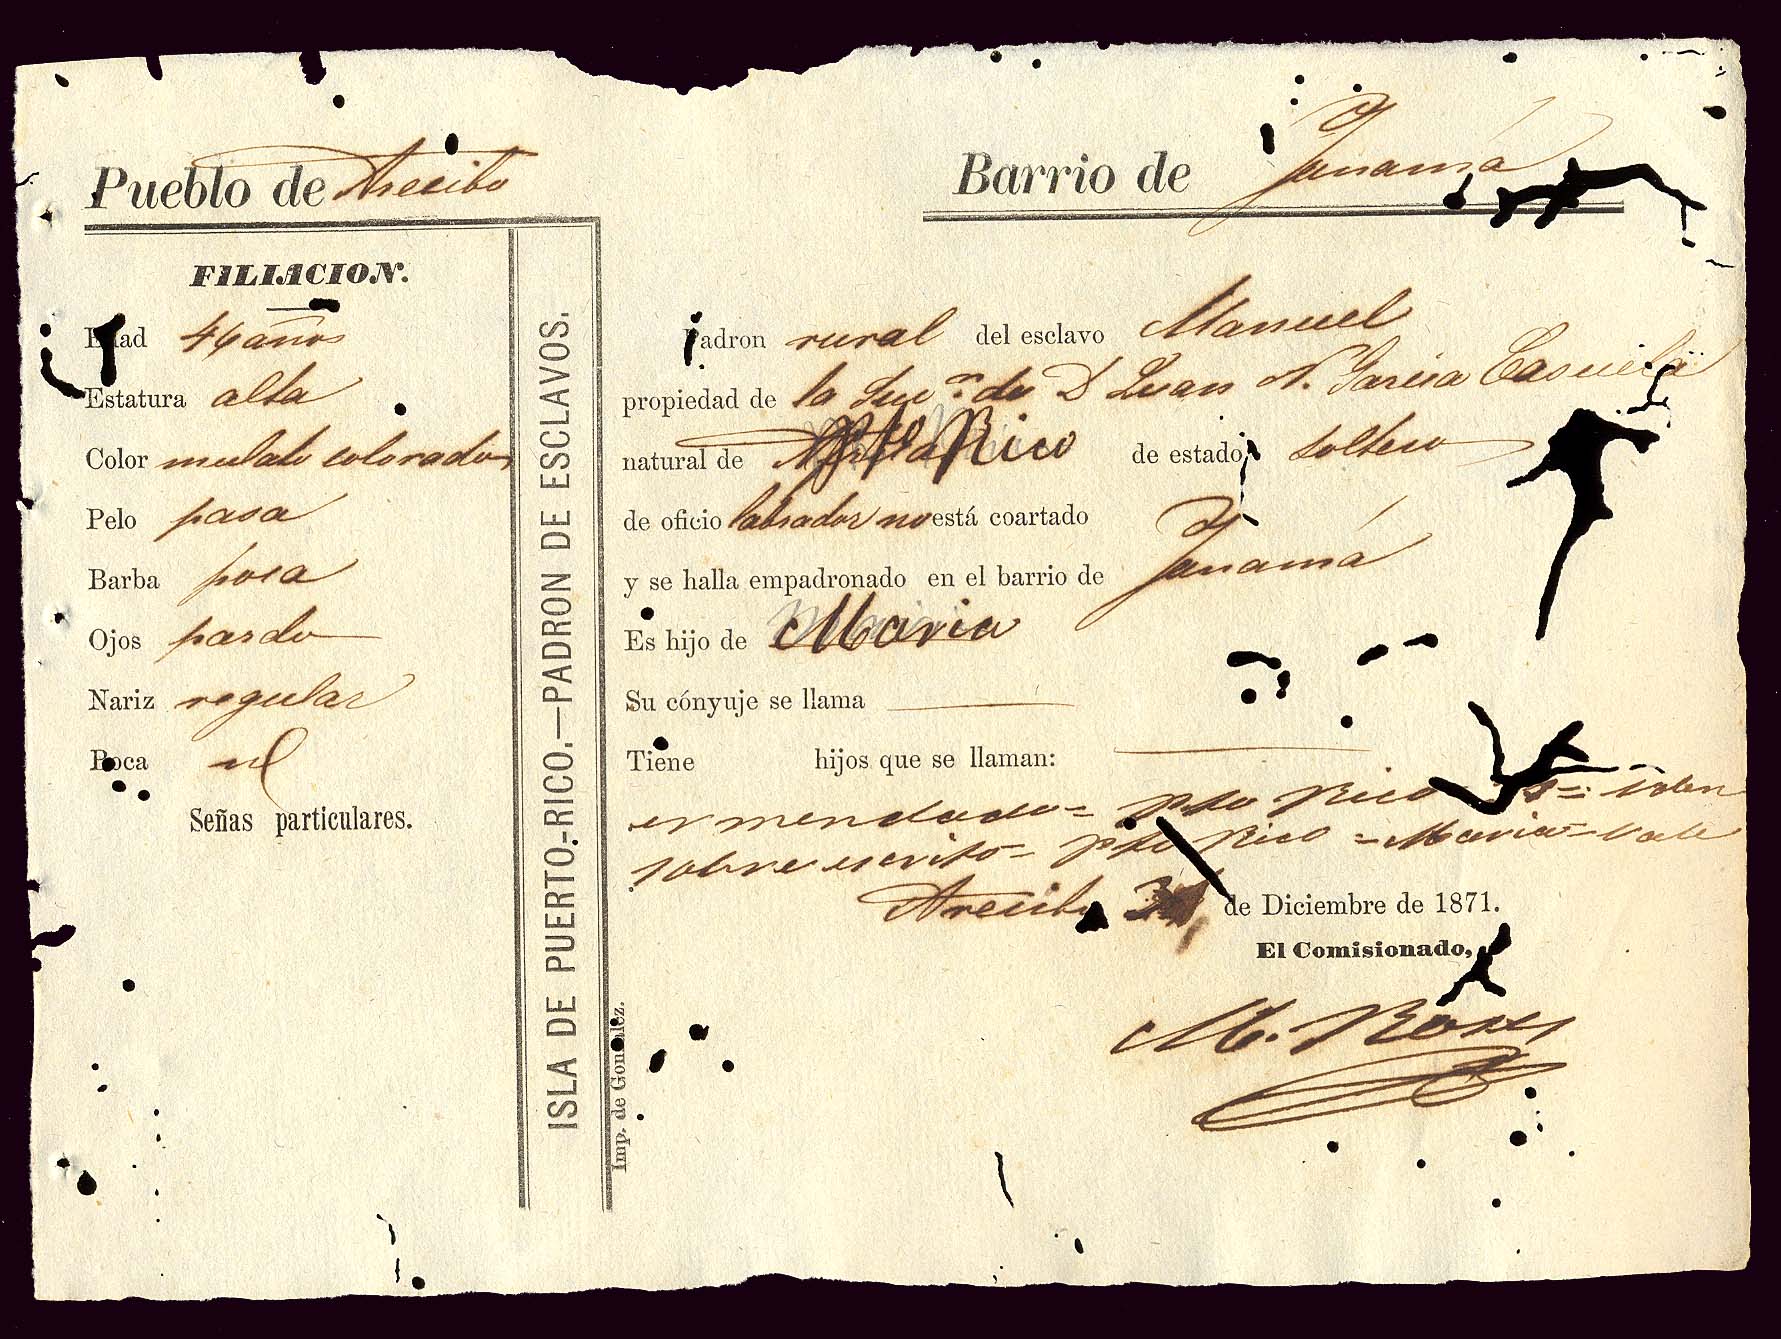 Pueblo de Arecibo
Barrio de Tanamá
FILIACION.
Edad 46 años
Estatura alta
Color mulato colorado
Pelo pasa
Barba poca
Ojos pardo
Nariz regular
Boca
Señas particulares.
ISLA DE PUERTO-RICO.—PADRON DE ESCLAVOS.
Imp. de Gonzalez.
Padron rural del esclavo Manuel
propiedad de la Sucn. de D Juan N. Garcia
natural de Pto Rico de estado soltero
de oficio labrador no está coartado
y se halla empadronado en el barrio de Tanamá
Es hijo de Maria
Su cónyuje se llama
Tiene hijos que se llaman:
enmendado = Pto Rico
sobre escrito = Pto Rico = Maria = Vale
Arecibo de Diciembre de 1871.
El Comisionado,
M.